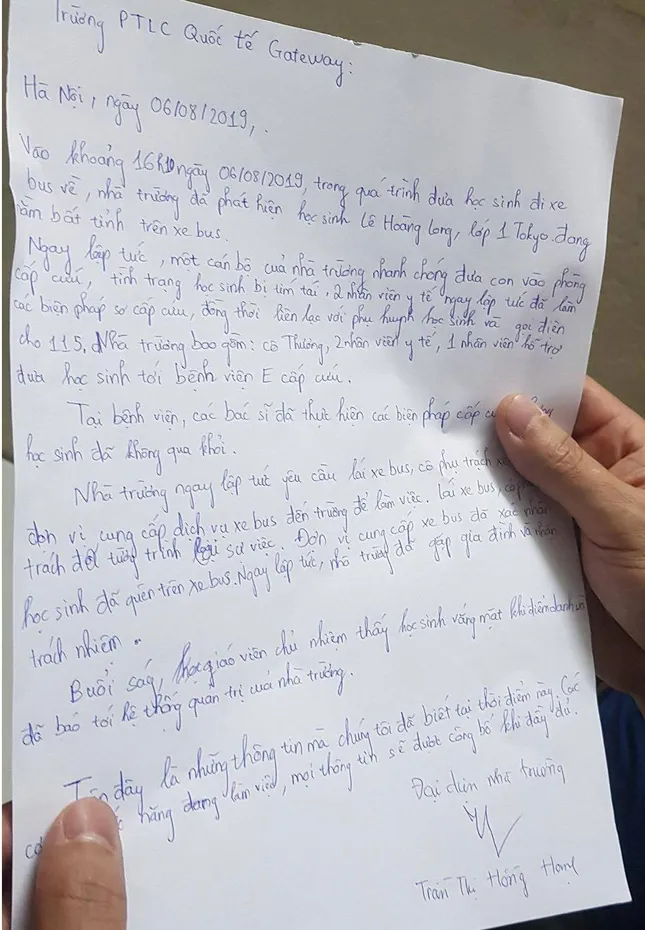 Trường PTLC Quốc tế Gateway:
Hà Nội, ngày 06/08/2019,.
Vào khoảng 16h10 ngày 06/08/2019, trong quá trình đưa học sinh đi xe
bus về, nhà trường đã phát hiện học sinh Lê Hoàng Long, lớp 1 Tokyo đang
nằm bất tỉnh trên xe bus.
Ngay lập tức, một cán bộ của nhà trường nhanh chóng đưa con vào phòng
cấp cứu, tình trạng học sinh bị tím tái, 2 nhân viên y tế ngay lập tức đã làm
các biện pháp sơ cấp cứu, đồng thời liên lạc với phụ huynh học sinh và gọi điện
cho 115. Nhà trường bao gồm: cô Thương, 2 nhân viên y tế, 1 nhân viên hỗ trợ
đưa học sinh tới bệnh viện E cấp cứu.
Tại bệnh viện, các bác sĩ đã thực hiện các biện pháp cấp
học sinh đã không qua khỏi.
Nhà trường ngay lập tức yêu cầu lái xe bus, cô phụ trách
đơn vị cung cấp dịch vụ xe bus đến trường để làm việc. Lái xe bus,
trách để tường trình lại sự việc. Đơn vị cung cấp xe bus đã xác nhận
học sinh đã quên trên xe bus. Ngay lập tức, nhà trường đã gặp gia đình và nhận
trách nhiệm.
Buổi sáng, giáo viên chủ nhiệm thấy học sinh vắng mặt khi điểm danh và
đã báo tới hệ thống quản trị của nhà trường.
đây là những thông tin mà chúng tôi đã biết tại thời điểm này. Các
năng đang làm việc, mọi thông tin sẽ được công bố khi đầy đủ.
Đại diện nhà trường
Trần Thị Hồng Hạnh